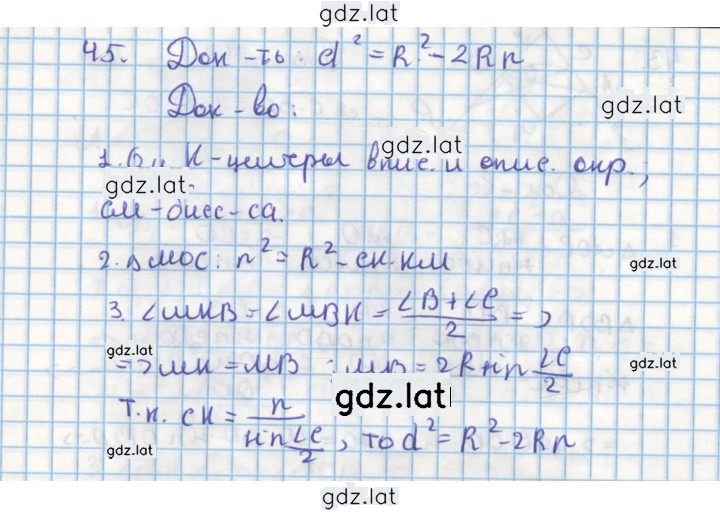 gdz.lat
45. Док-ть: d² = R² - 2Rr
gdz.lat
Док-во:
gdz.lat
K - центры впис. и опис. окр.;
gdz.lat
см - бисс-са.
2. ΔMOC: n² = R² - CK·KM
gdz.lat
3. ∠MKB = ∠MBK = (∠B + ∠C)/2 = >
gdz.lat
gdz.lat
=> MK = MB MB = 2R sin ∠C/2
gdz.lat
Т.к. CK = n/(sin ∠C/2), то d² = R² - 2Rn
gdz.lat
gdz.lat